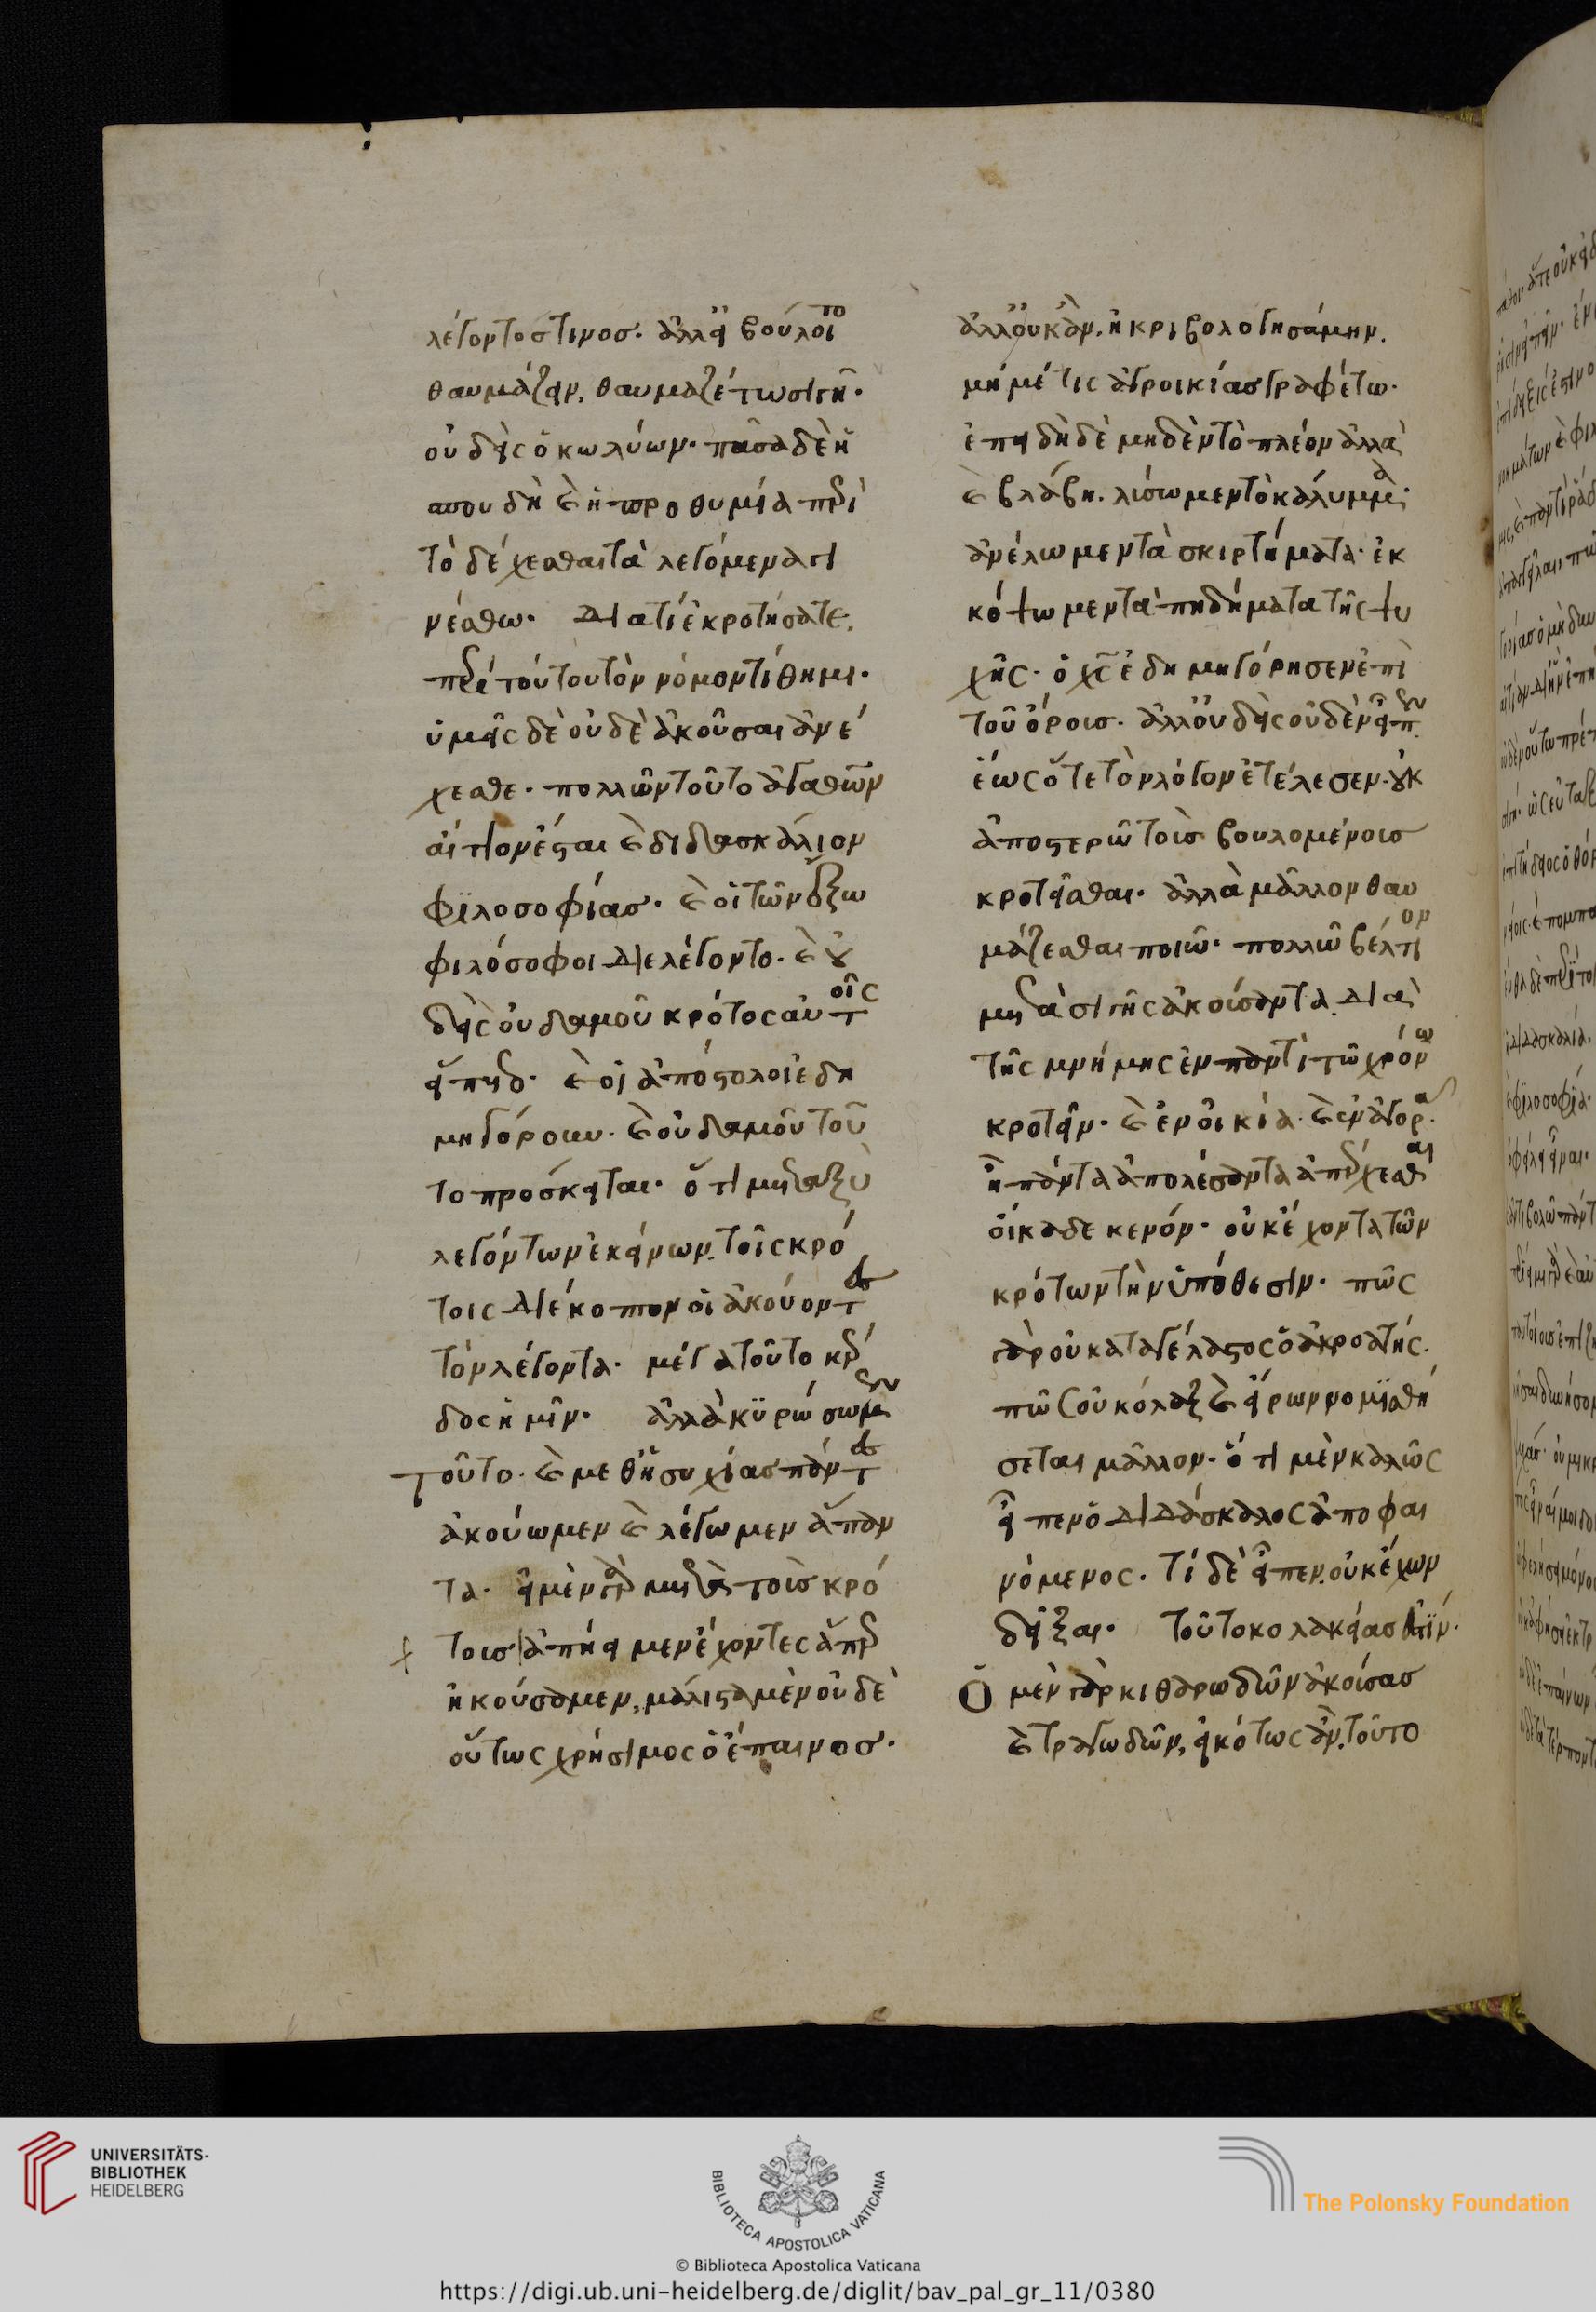 λέγοντος τινος· ἀλλ' εἰ βούλοιτο
θαυμάζειν, θαυμαζέτω σιγῆ·
οὐδεὶς ὁ κωλύων· πᾶσα δὲ ἡ
σπουδὴ καὶ ἡ προθυμία περὶ
τὸ δέχεσθαι τὰ λεγόμενα γι
νέσθω· Διατί ἐκροτήσατε.
περὶ τούτου τὸν νόμον τίθημι·
ὑμεῖς δὲ οὐδὲ ἀκοῦσαι ἀνέ
χεσθε· πολλῶν τοῦτο ἀγαθῶν
αἴτιον ἔσται καὶ διδασκάλιον
φιλοσοφίας· καὶ οἱ τῶν ἔξω
φιλόσοφοι διελέγοντο· καὶ οὐ
δεὶς οὐδαμοῦ κρότος αὐτοῖς
εἵπετο· καὶ οἱ ἀπόστολοι ἐδη
μηγόρουν· καὶ οὐδαμοῦ τοῦ
το πρόσκειται· ὅτι μεταξὺ
λεγόντων ἐκείνων, τοῖς κρό
τοις διέκοπτον οἱ ἀκούοντες
τὸν λέγοντα· μέγα τοῦτο κέρ
δος ἡμῖν· ἀλλὰ κυρώσωμεν
τοῦτο· καὶ μεθ' ἡσυχίας πάντες
ἀκούωμεν καὶ λέγωμεν ἅπαν
τα· εἰ μὲν γὰρ μετὰ τοὺς κρό
τους ἀπήειμεν ἔχοντες ἅπερ
ἠκούσαμεν, μάλιστα μὲν οὐδὲ
οὕτως χρήσιμος ὁ ἔπαινος·
ἀλλ' οὐκ ἂν, ἠκριβολογησάμην.
μή μέ τις ἀγροικίας γραφέτω·
ἐπειδὴ δὲ μηδὲν τὸ πλέον ἀλλὰ
καὶ βλάβη, λύσωμεν τὸ κάλυμμα·
ἀνέλωμεν τὰ σκιρτήματα· ἐκ
κόψωμεν τὰ πηδήματα τῆς ψυ
χῆς· ὁ χς ἐδημηγόρησεν ἐπὶ
τοῦ ὄρους· ἀλλ' οὐδεὶς οὐδὲν εἶπεν
ἕως ὅτε τὸν λόγον ἐτέλεσεν· οὐκ
ἀποστερῶ τοὺς βουλομένους
κροτεῖσθαι· ἀλλὰ μᾶλλον θαυ
μάζεσθαι ποιῶ· πολλῶ βέλτιον
μετὰ σιγῆς ἀκούσαντα, διὰ
τῆς μνήμης ἐν παντὶ τῶ χρόνω
κροτεῖν· καὶ ἐν οἰκία· καὶ ἐν ἀγορᾶ·
ἢ πάντα ἀπολέσαντα ἀπέρχεσθαι
οἴκαδε κενόν· οὐκ ἔχοντα τῶν
κρότων τὴν ὑπόθεσιν· πῶς
γὰρ οὐ καταγέλαστος ὁ ἀκροατής.
πῶς οὐ κόλαξ καὶ εἴρων νομισθή
σεται μᾶλλον· ὅτι μὲν καλῶς
εἶπεν ὁ διδάσκαλος ἀποφαι
νόμενος· τί δὲ εἶπεν, οὐκ ἔχων
δεῖξαι· τοῦτο κολακείας ἐστίν·
Ὁ μὲν γὰρ κιθαρωδῶν ἀκούσας
καὶ τραγωδῶν, εἰκότως ἂν, τοῦτο
UNIVERSITÄTS-
BIBLIOTHEK
HEIDELBERG
BIBLIOTECA APOSTOLICA VATICANA
© Biblioteca Apostolica Vaticana
The Polonsky Foundation
https://digi.ub.uni-heidelberg.de/diglit/bav_pal_gr_11/0380